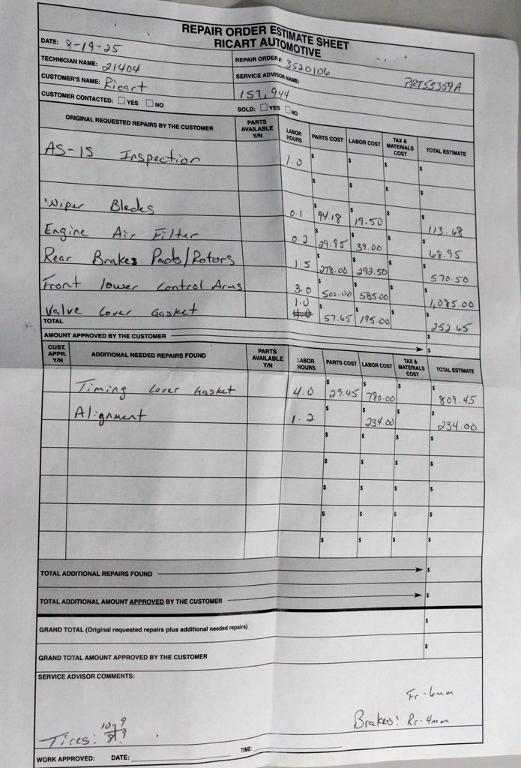 REPAIR ORDER ESTIMATE SHEET
RICART AUTOMOTIVE
DATE: 8-19-25
TECHNICIAN NAME: 21404 REPAIR ORDER #: 3520106
CUSTOMER'S NAME: Ricart SERVICE ADVISOR NAME: PRT53359A
CUSTOMER CONTACTED: ☐ YES ☐ NO 157,944
SOLD: ☐ YES ☐ NO
ORIGINAL REQUESTED REPAIRS BY THE CUSTOMER PARTS AVAILABLE Y/N LABOR HOURS PARTS COST LABOR COST TAX & MATERIALS COST TOTAL ESTIMATE
AS-IS Inspection 1.0 $ $ $ $
$ $ $ $
Wiper Blades 0.1 $94.18 $19.50 $ $113.68
Engine Air Filter 0.2 $29.95 $39.00 $ $68.95
Rear Brakes Pads/Rotors 1.5 $278.00 $292.50 $ $570.50
Front lower control Arms 3.0 $500.00 $585.00 $ $1,085.00
Valve cover Gasket 1.0 $57.65 $195.00 $ $252.65
TOTAL
AMOUNT APPROVED BY THE CUSTOMER $
CUST. APPR. Y/N ADDITIONAL NEEDED REPAIRS FOUND PARTS AVAILABLE Y/N LABOR HOURS PARTS COST LABOR COST TAX & MATERIALS COST TOTAL ESTIMATE
Timing cover Gasket 4.0 $29.45 $780.00 $ $809.45
Alignment 1.2 $ $234.00 $ $234.00
$ $ $ $
$ $ $ $
$ $ $ $
$ $ $ $
$ $ $ $
TOTAL ADDITIONAL REPAIRS FOUND $
TOTAL ADDITIONAL AMOUNT APPROVED BY THE CUSTOMER $
GRAND TOTAL (Original requested repairs plus additional needed repairs) $
GRAND TOTAL AMOUNT APPROVED BY THE CUSTOMER $
SERVICE ADVISOR COMMENTS:
Fr-6mm
Brakes: Rr-4mm
Tires: 10 9
8 9
WORK APPROVED: DATE: TIME: